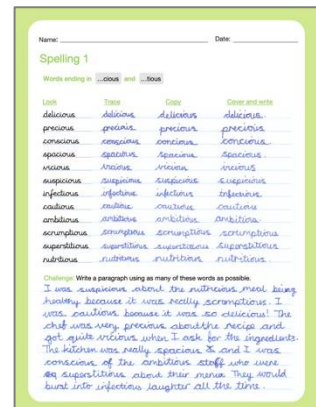 Name: Date:
Spelling 1
Words ending in ...cious and ...tious
Look Trace Copy Cover and write
delicious delicious delicious delicious
precious precious precious precious
conscious conscious concious concious
spacious spacious spacious spacious
vicious vicious vicious vicious
suspicious suspicious suspicious suspicious
infectious infectious infectious infectious
cautious cautious cautious cautious
ambitious ambitious ambitious ambitious
scrumptious scrumptious scrumptious scrumptious
superstitious superstitious superstitious
nutritious nutritious nutritious nutritious
Challenge: Write a paragraph using as many of these words as possible.
I was suspicious about the nutricious meal being
healthy because it was really scromptious. I
was cautious because it was so delicious! The
chef was very precious about the recipe and
got quite vicious when I ask for the ingredients.
The kitchen was really spacious & and I was
conscious of the ambitious staff who were
superstitious about their menu. They would
burst into infectious laughter all the time.